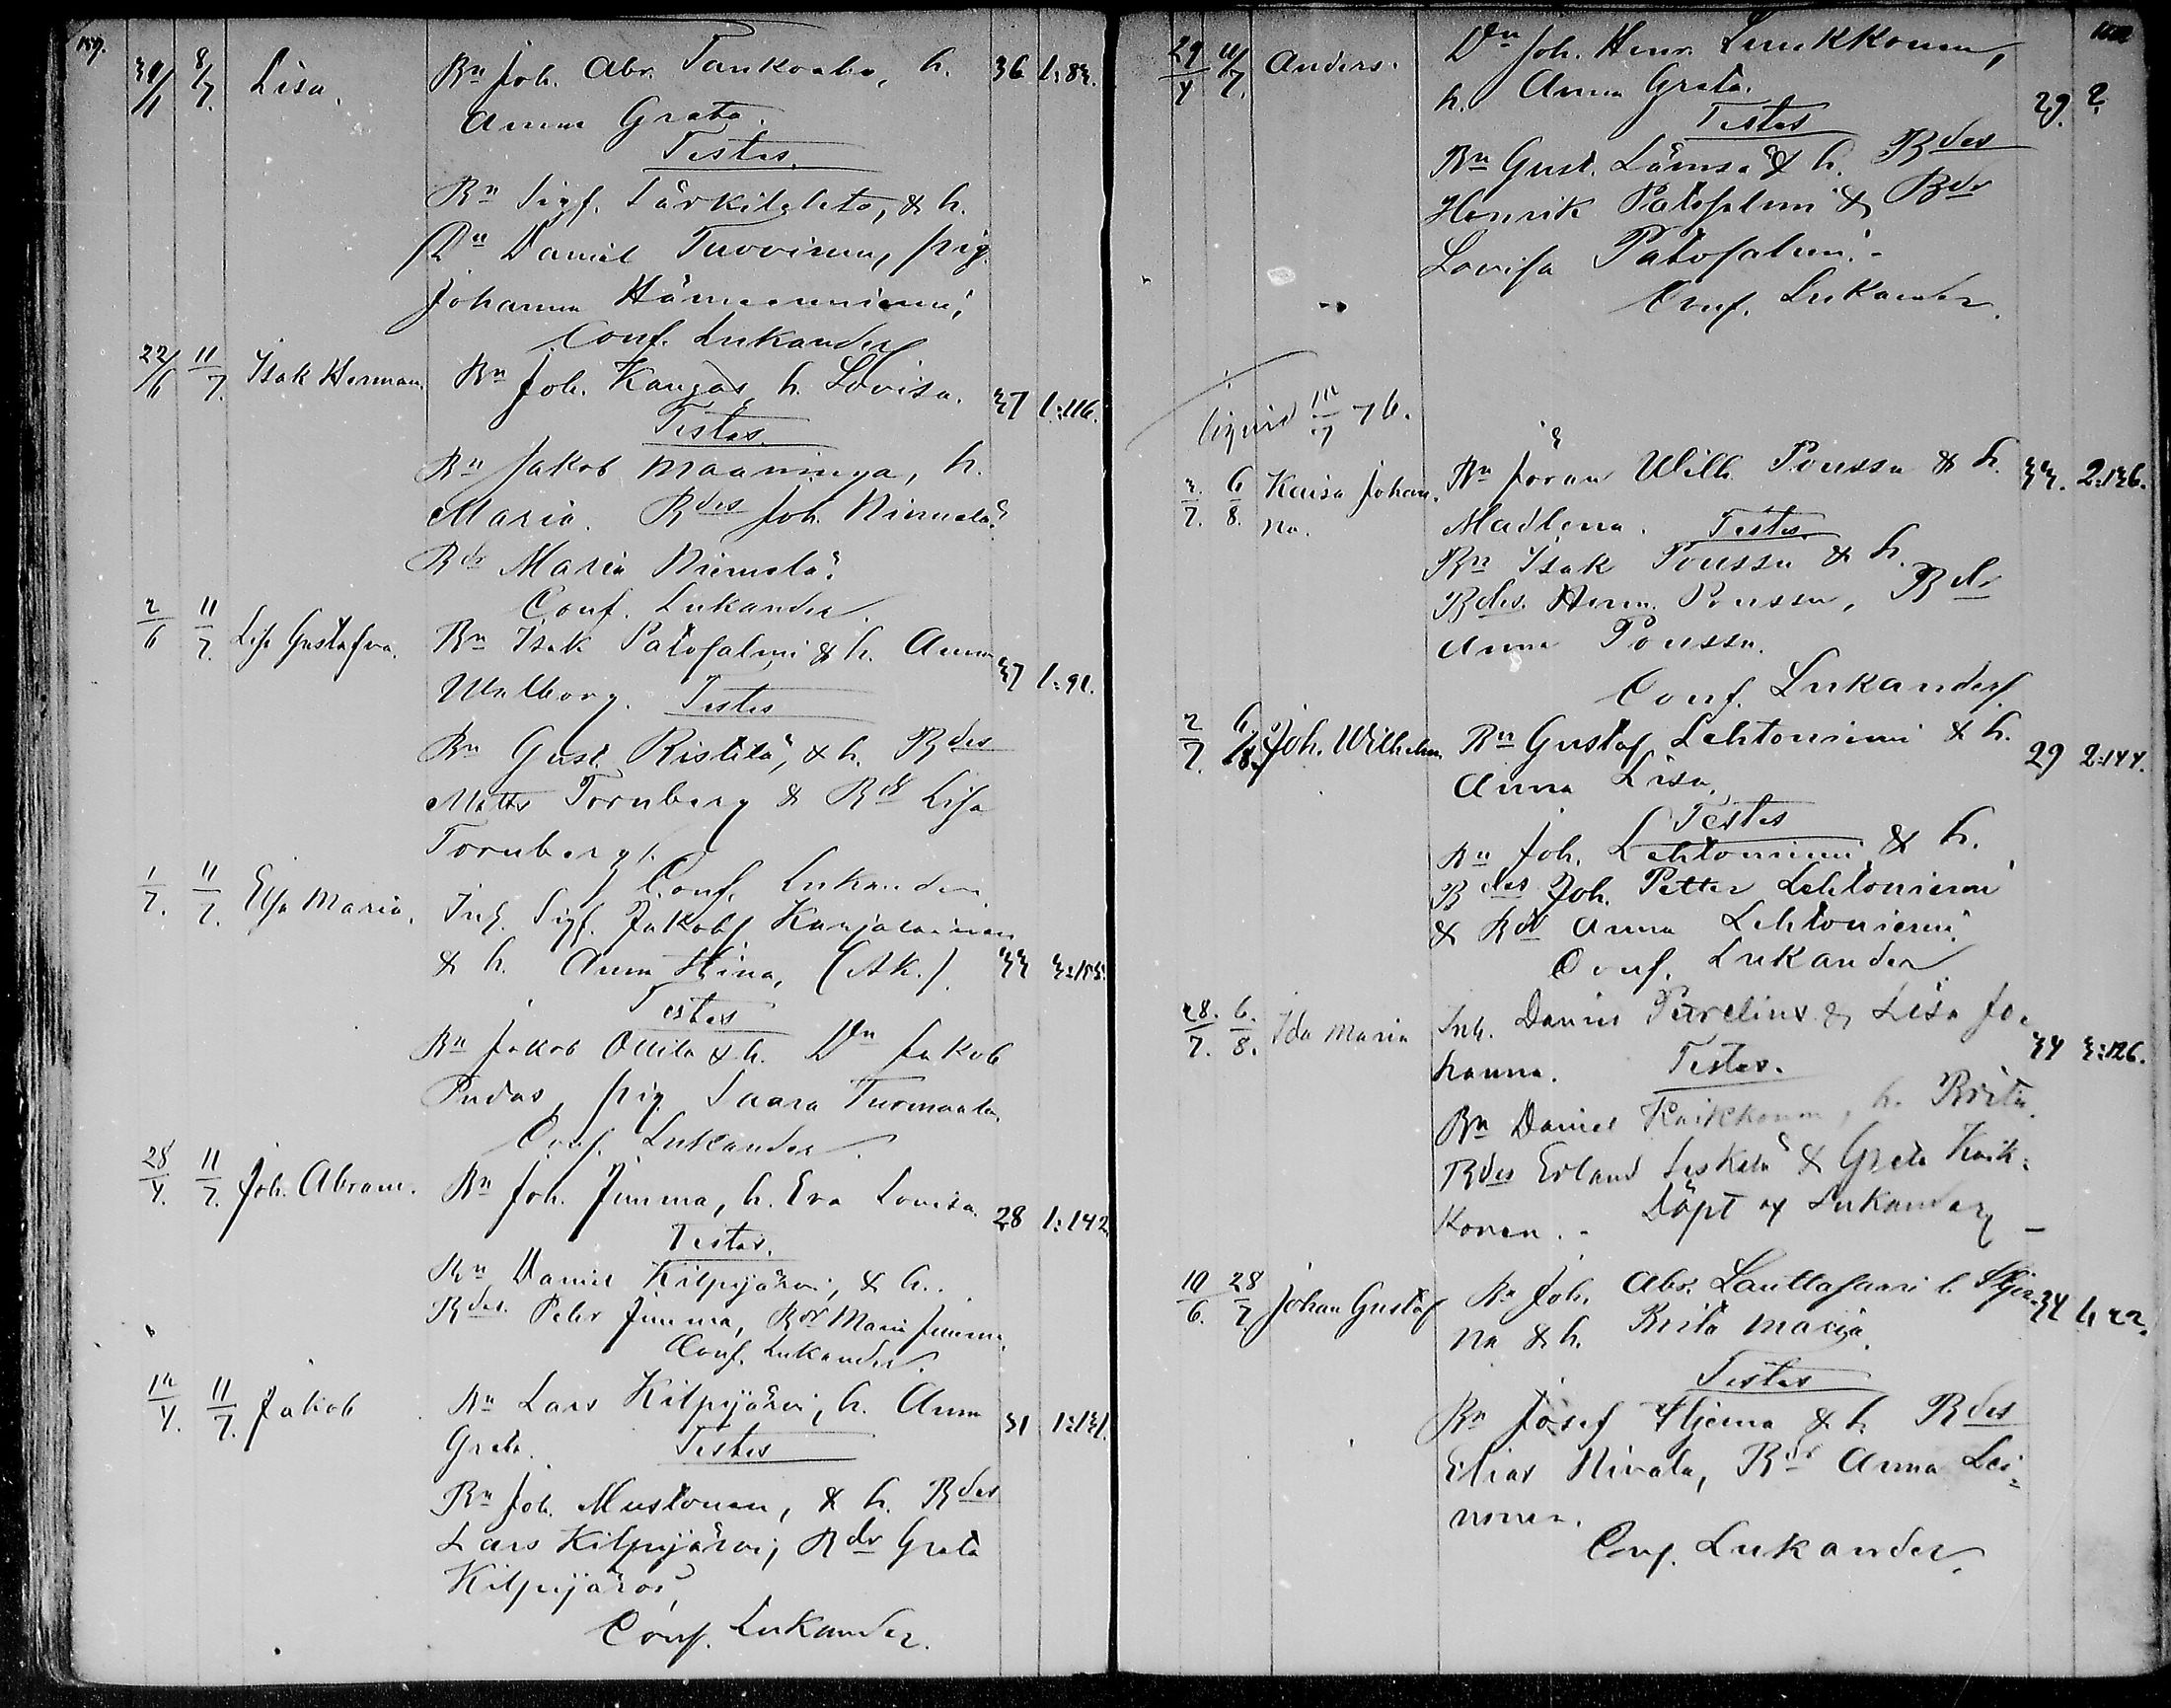 159.
Lisa. Bn Joh. Abr. Pankoaho, h. 36 1:83.
Anna Greta.
Testes.
Bn Sigf. Särkilehto, & h.
Dn Daniel Turvinen, pig.
Johanna Hämeenniemi,
Conf. Lukander
22/6 11/7. Isak Herman. Bn Joh. Kangas, h. Lovisa. 37 1:116.
Testes.
Bn Jakob Maaninga, h.
Maria. Bdes Joh. Niemelä,
Bdr Maria Niemelä.
Conf. Lukander.
2/6 11/7. Lisa Gustafva. Bn Isak Patosalmi & h. Anna 37 1:91.
Walborg. Testes
Bn Gust. Ristilä, & h. Bdes
Matts Tornberg & Bdr Lisa
Tornberg.
Conf. Lukander.
1/7. 11/7. Elsa Maria. Inh. Sigf. Jakobs Karjalainen
& h. Anna Stina, (Ak.). 33 3:153.
Testes
Bn Jakob Ollila & h. Dn Jakob
Pudas, pig. Saara Turmaala.
Conf. Lukander.
28/4. 11/7. Joh. Abram. Bn Joh. Jumma, h. Eva Lovisa. 28 1:142
Testes.
Bn Daniel Kilpijärvi, & h.
Bdes. Peter Jumma, Bdr Maria Jumma.
Conf. Lukander.
12/4. 11/7. Jakob Bn Lars Kilpijärvi, h. Anna 31 1:131.
Greta. Testes
Bn Joh. Mustonen, & h. Bdes
Lars Kilpijärvi, Bdr Greta
Kilpijärvi
Conf. Lukander.
29/4 11/7. Anders. Dn Joh. Henr. Luukkonen,
h. Anna Greta. 29. ?
Testes
Bn Gust. Lämsä & h. Bdes
Henrik Patosalmi & Bdr
Lovisa Patosalmi.-
Conf. Lukander.
76.
2/7. 6/8. Kaisa Johan- Bn Jöran Wilh. Poussu & h. 33. 2:136.
na. Madlena. Testes.
Bn Isak Poussu & h.
Bdes. Herm. Poussu, Bdr
Anna Poussu.
Conf. Lukander.
2/7. 6/8. Joh. Wilhelm Bn Gustaf Lehtoniemi & h. 29 2:144.
Anna Lisa.
Testes
Bn Joh. Lehtoniemi & h.
Bdes Joh. Petter Lehtoniemi
& Bdr Anna Lehtoniemi.
Conf. Lukander
28./7. 6./8. Ida Maria Inh. Daniel Parelius & Lisa Jo- 34 3:126.
hanna. Testes.
Bn Daniel Kaikkonen, h. Brita.
Bdes Erland Leskelä & Greta Kaik-
konen. - Döpt af Lukander -
10/6. 28/7. Johan Gustaf Bn Joh. Abr. Lauttasaari l. Stjer- 34
na & h. Brita Maria.
Testes
Bn Josef Stjerna & h. Bdes
Elias Nivala, Bdr Anna Lei-
nonen.
Conf. Lukander.